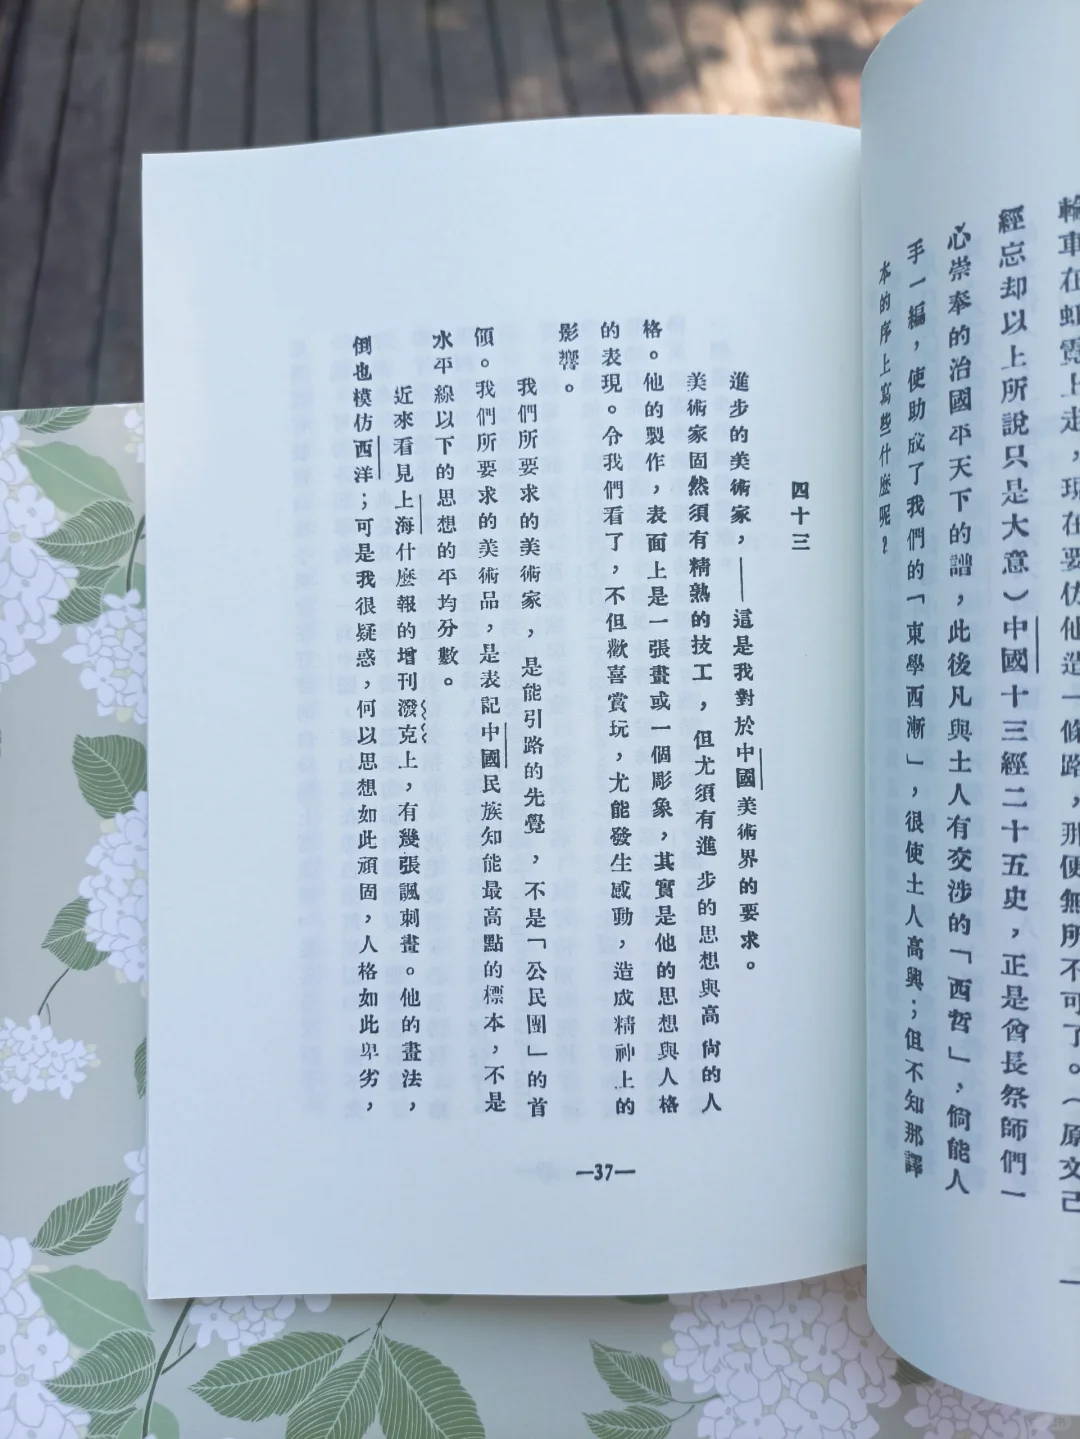 輪車在虹霓上走，現在要仿他造一條路，那便無所不可了。（原文已
經忘却以上所說只是大意）中國十三經二十五史，正是酋長祭師們一
心崇奉的治國平天下的譜，此後凡與土人有交涉的「西哲」，倘能人
手一編，便助成了我們的「東學西漸」，很使土人高興；但不知那譯
本的序上寫些什麽呢？
四十三
進步的美術家，——這是我對於中國美術界的要求。
美術家固然須有精熟的技工，但尤須有進步的思想與高尚的人
格。他的製作，表面上是一張畫或一個彫象，其實是他的思想與人格
的表現。令我們看了，不但歡喜賞玩，尤能發生感動，造成精神上的
影響。
我們所要求的美術家，是能引路的先覺，不是「公民團」的首
領。我們所要求的美術品，是表記中國民族知能最高點的標本，不是
水平線以下的思想的平均分數。
近來看見上海什麽報的增刊潑克上，有幾張諷刺畫。他的畫法，
倒也模仿西洋；可是我很疑惑，何以思想如此頑固，人格如此卑劣，
—37—